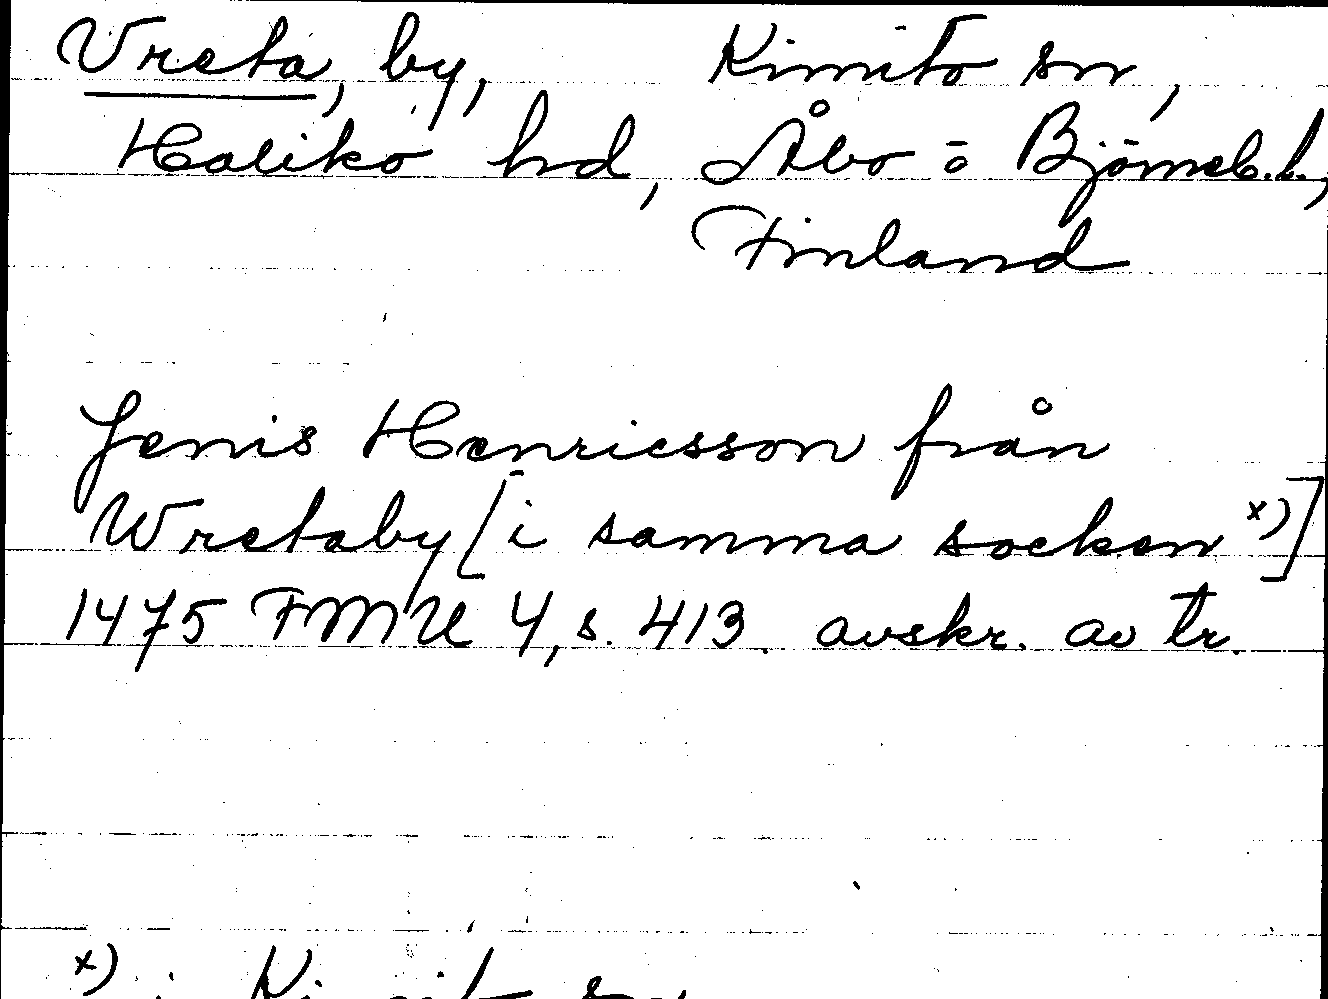 Vreta, by, Kimito sn,
Haliko hd, Åbo o Björneb.l.,
Finland
Jenis Henricsson från
Wretaby [i samma socken x)]
1475 FMU 4, s. 413. avskr. av tr.
x) i Kimito sn